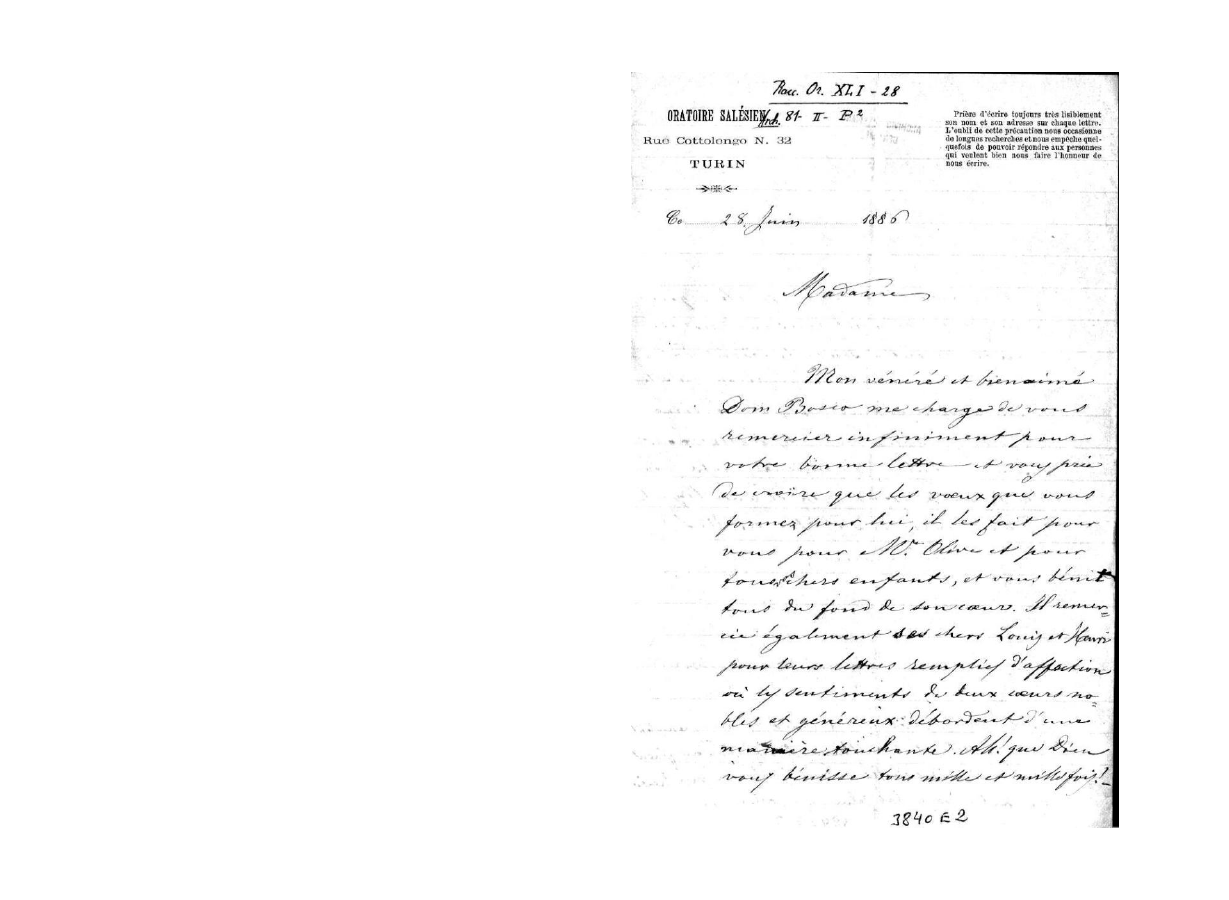 Rac. Or. XLI - 28
ORATOIRE SALÉSIEN Arch. 81- II- P²
Rue Cottolengo N. 32
TURIN
Prière d'écrire toujours très lisiblement
son nom et son adresse sur chaque lettre.
L'oubli de cette précaution nous occasionne
de longues recherches et nous empêche quel-
quefois de pouvoir répondre aux personnes
qui veulent bien nous faire l'honneur de
nous écrire.
Ce 28 Juin 1886
Madame
Mon vénéré et bien aimé
Dom Bosco me charge de vous
remercier infiniment pour
votre bonne lettre et vous prie
de croire que les vœux que vous
formez pour lui, il les fait pour
vous pour Mr. Olive et pour
tous chers enfants, et vous bénit
tous du fond de son cœur. Il remer=
cie également ses chers Louis et Henri
pour leurs lettres remplies d'affection
où les sentiments de deux cœurs no=
bles et généreux débordent d'une
manière touchante. Ah! que Dieu
vous bénisse tous mille et mille fois!
3840 E 2